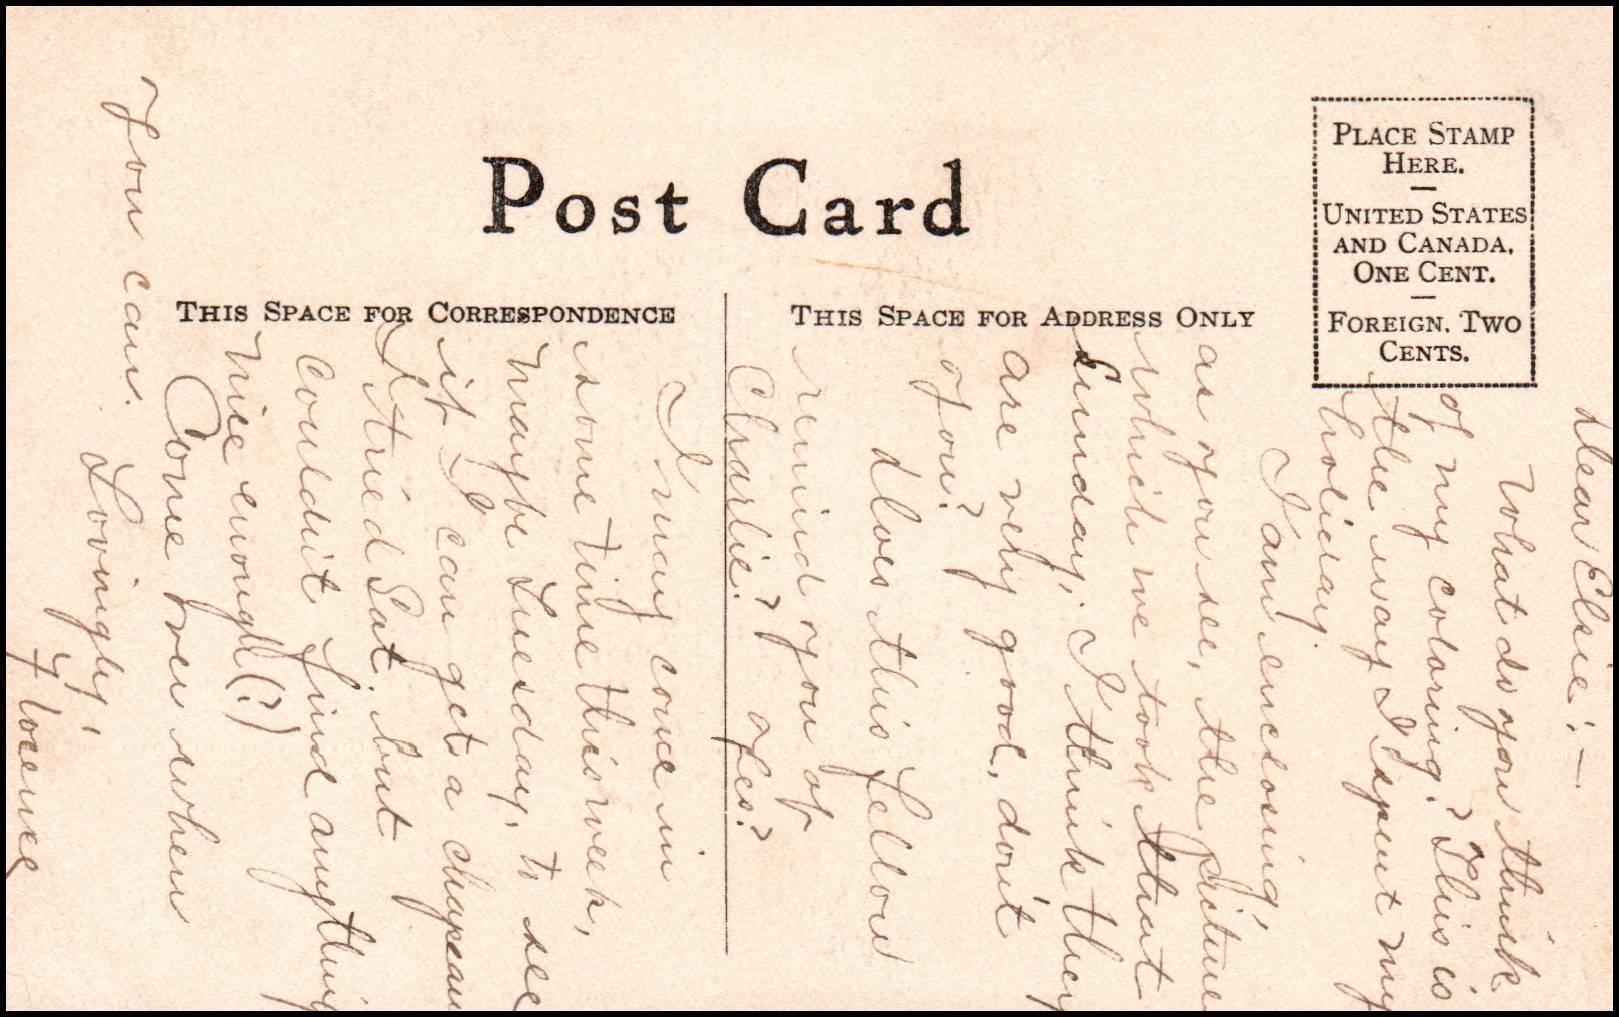 Post Card
THIS SPACE FOR CORRESPONDENCE
THIS SPACE FOR ADDRESS ONLY
PLACE STAMP
HERE.
UNITED STATES
AND CANADA,
ONE CENT.
FOREIGN, TWO
CENTS.
Dear Elsie:—
What do you think
of my coloring? This is
the way I spent my
holiday.
I am enclosing,
as you see, the picture
which we took that
Sunday. I think they
are very good, don't
you?
Does this fellow
remind you of
Charlie? Yes?
I may come in
some time this week,
maybe Tuesday, to see
if I can get a chapeau
I tried Sat. but
couldn't find anything
nice enough (?)
Come over when
you can.
Lovingly,
Florence